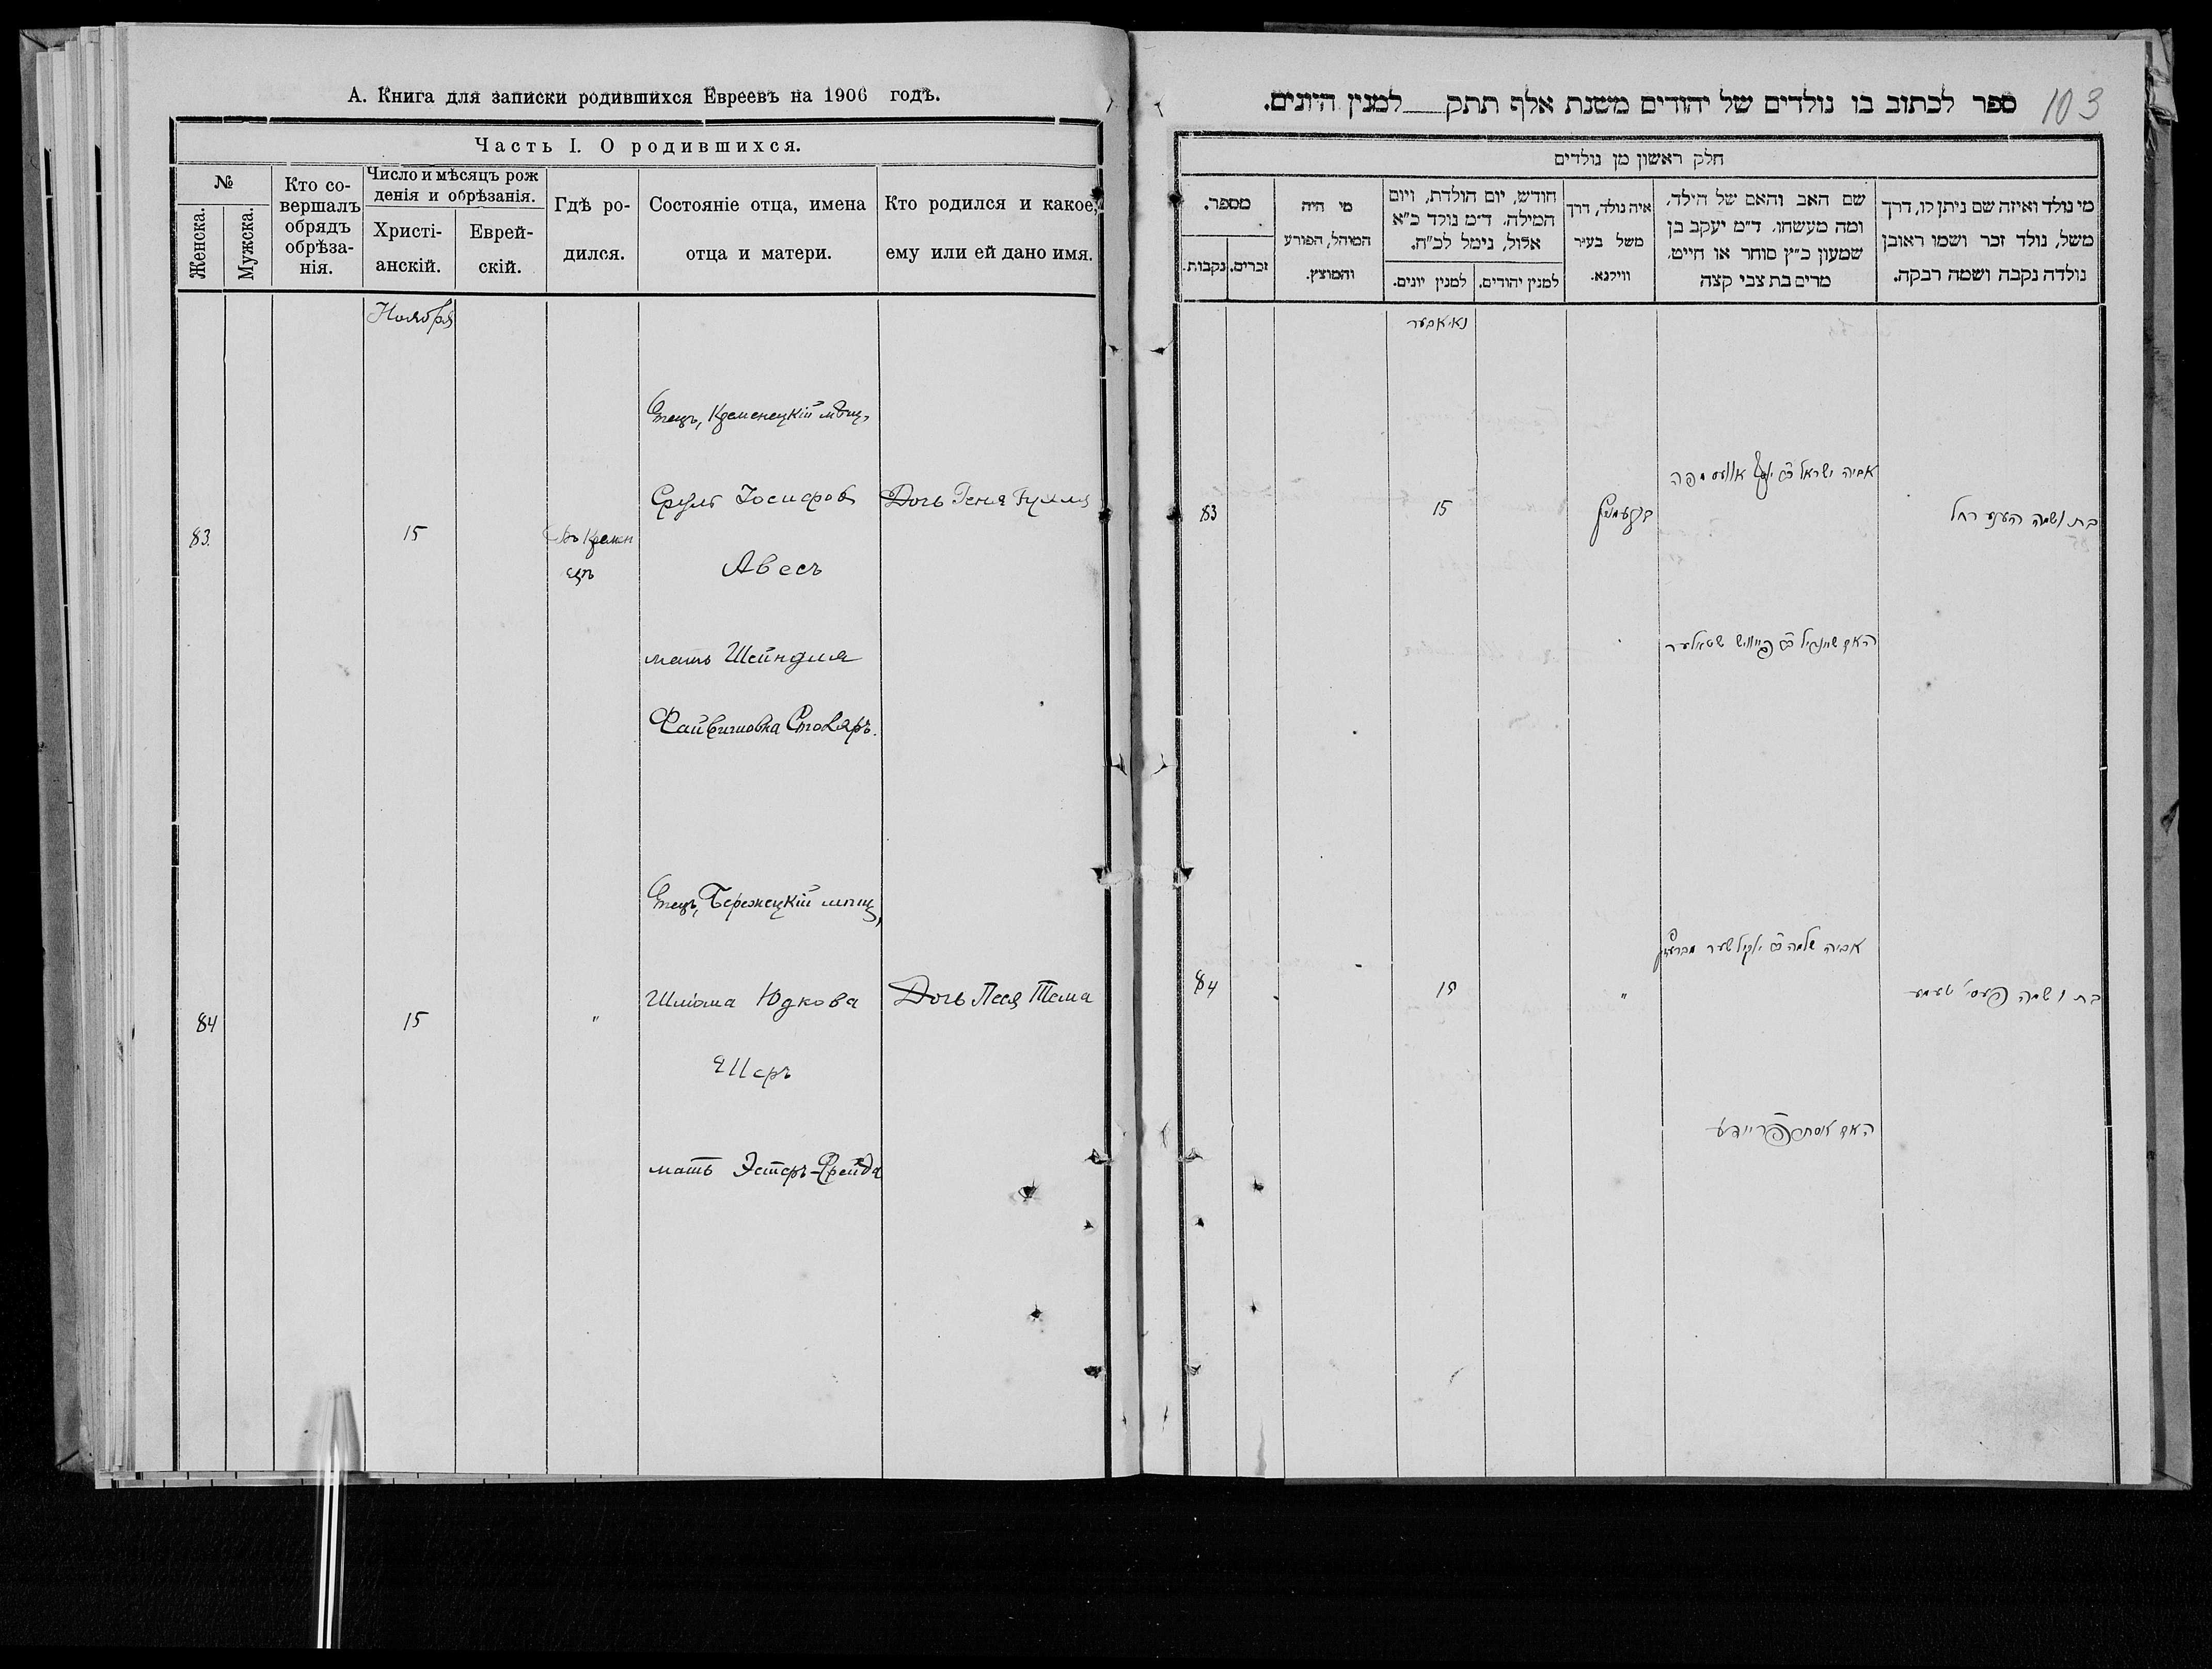 А. Книга для записки родившихся Евреевъ на 1906 годъ.
Часть I. О родившихся.
№
Женска.
Мужска.
Кто со-
вершалъ
обрядъ
обрѣза-
нія.
Число и мѣсяцъ рож
денія и обрѣзанія.
Христі-
анскій.
Еврей-
скій.
Гдѣ ро-
дился.
Состояніе отца, имена
отца и матери.
Кто родился и какое,
ему или ей дано имя.
Ноября
83.
15
Въ Кремен
цѣ
Отецъ, Кременецкій мѣщ,
Сруль Іосифовъ
Авесъ
мать Шейндля
Файвишовна Столяръ.
Дочь Геня
84
15
"
Отецъ, Бережецкій мѣщ,
Шліома Юдкова
Шеръ
мать Эстеръ-Фрейда
Дочь Песя Тема
ספר לכתוב בו נולדים של יהודים משנת אלף תתק למנין היונים.
103
חלק ראשון מן נולדים
מי נולד ואיזה שם ניתן לו, דרך
משל, נולד זכר ושמו ראובן
נולדה נקבה ושמה רבקה.
שם האב והאם של הילד,
ומה מעשהו. ד״מ יעקב בן
שמעון כ״ץ סוחר או חייט,
מרים בת צבי קצה
איה נולד, דרך
משל בעיר
ווילנא.
חודש, יום הולדת, ויום
המילה. ד״מ נולד כ״א
אלול, נימל לכ״ח.
למנין יהודים.
למנין יונים.
מי היה
המוהל, הפורע
והמוצץ.
מספר.
זכרים.
נקבות.
נאיאבער
83
15
בקרעמניץ
אביה ישראל
האם שיינדיל פייוויש סטאלער
בת ושמה העניע רחל
84
15
"
אביה שלמה שער
האם אסתר פריידע
בת ושמה פעסי טעמע